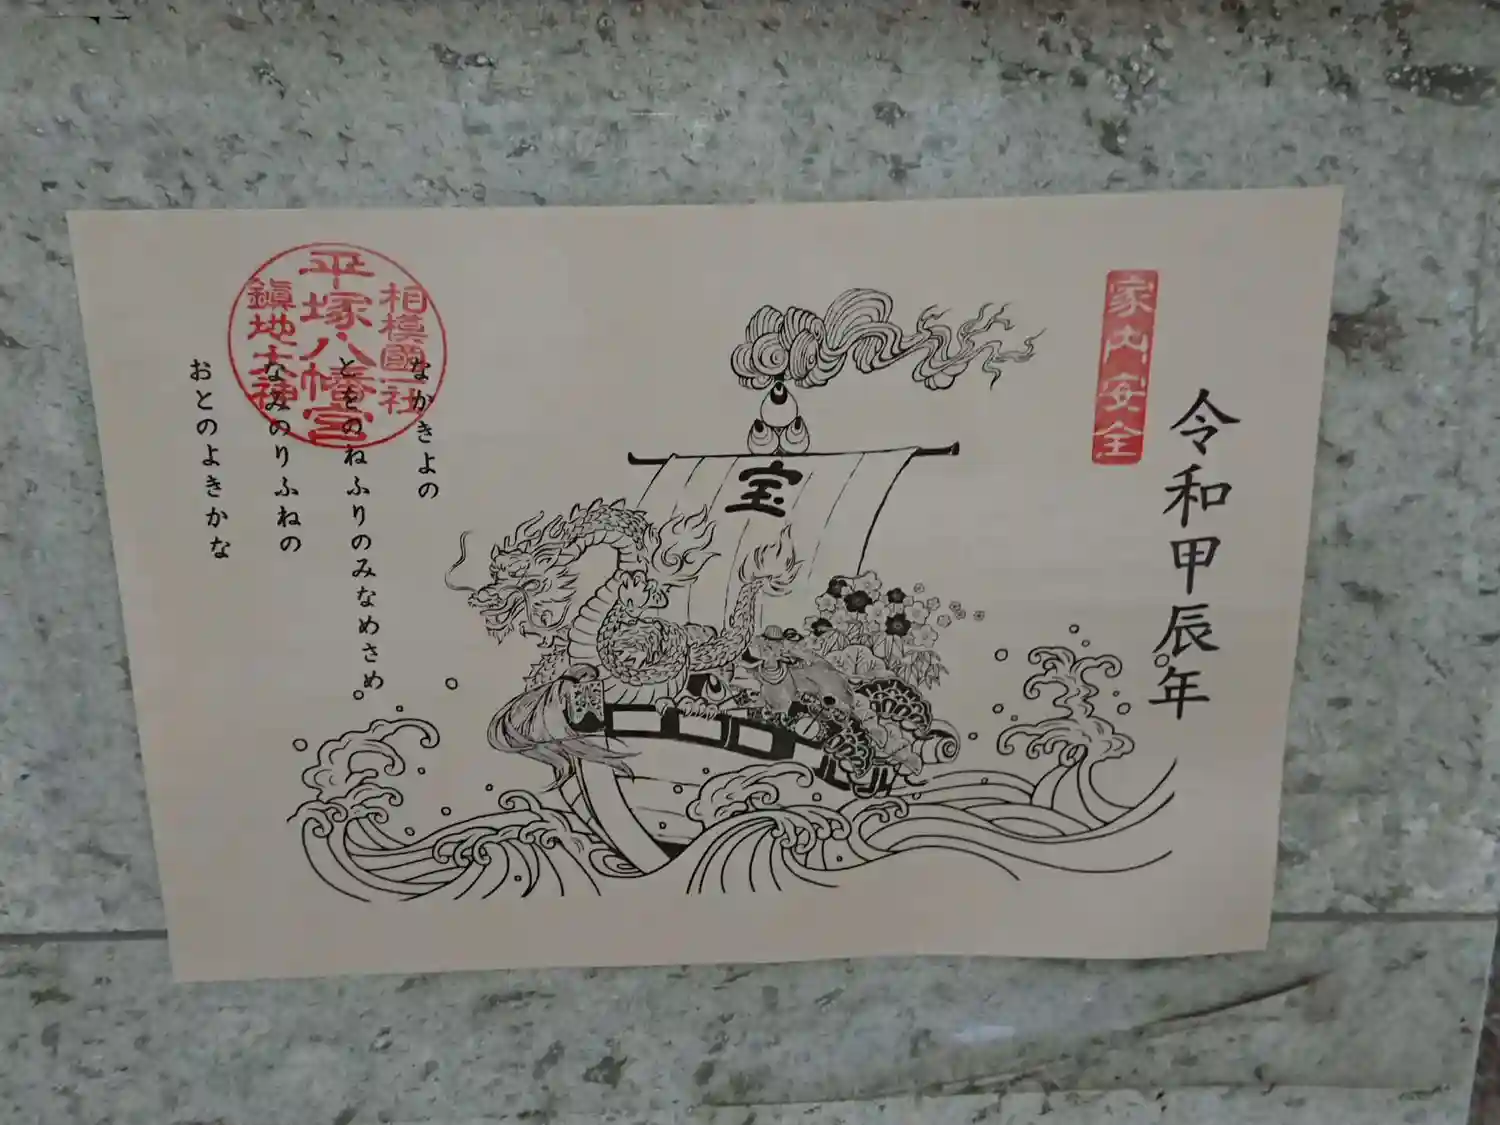 令和甲辰年
家内安全
宝
なかきよの
とをのねふりのみなめさめ
なみのりふねの
おとのよきかな
相模國一社
平塚八幡宮
鎭地大神